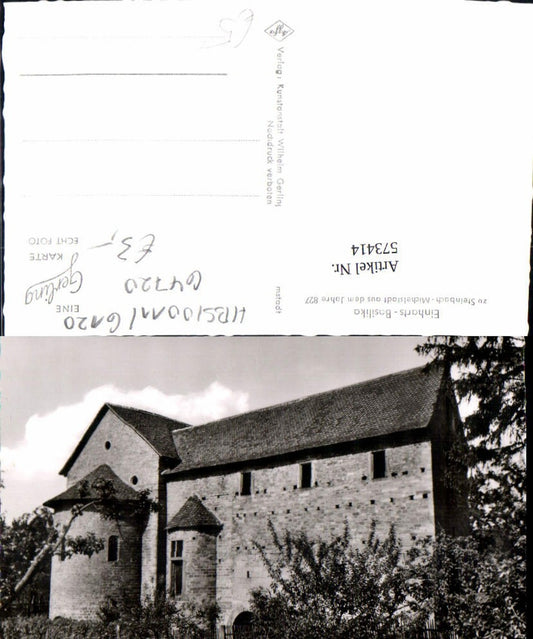 Einharts - Basilika
zu Steinbach - Michelstadt aus dem Jahre 827
Artikel Nr.
573414
EINE
Gerling
KARTE
ECHT FOTO
64720
€3,-
Verlag: Kunstanstalt Wilhelm Gerling
Nachdruck verboten
mstadt
Agfa